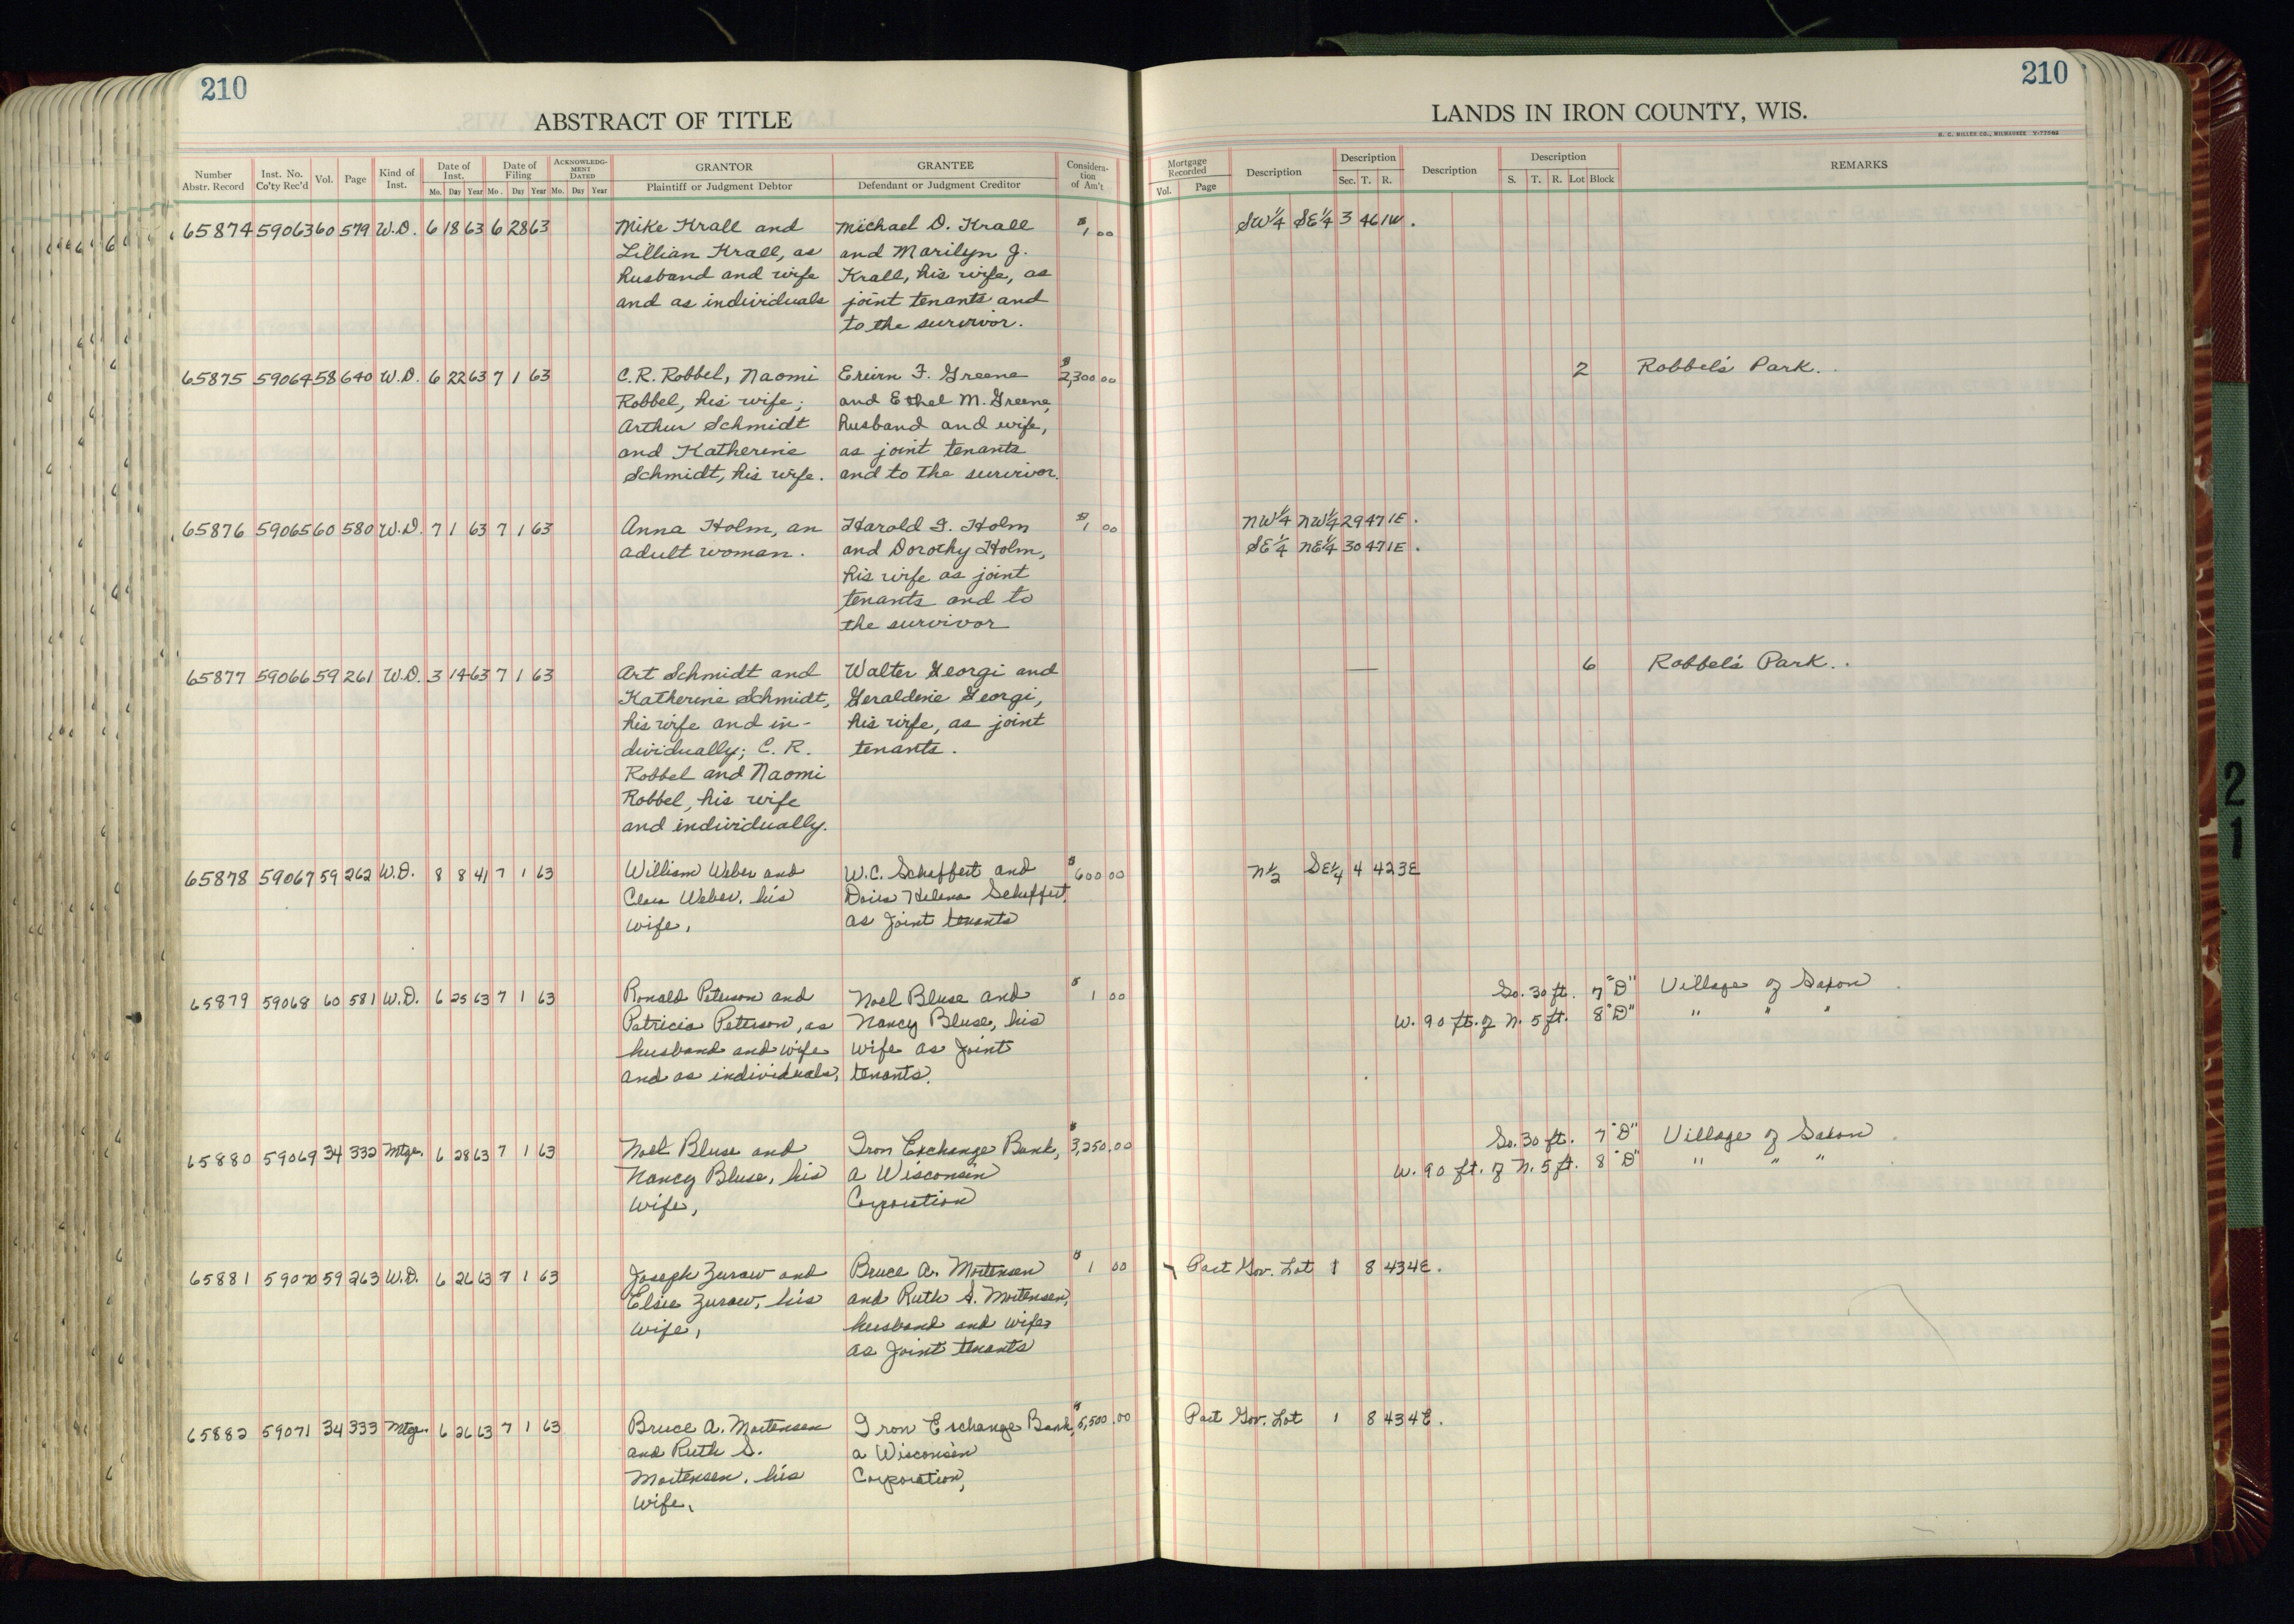 210
210
ABSTRACT OF TITLE
LANDS IN IRON COUNTY, WIS.
H. C. MILLER CO., MILWAUKEE
Number Abstr. Record | Inst. No. Co'ty Rec'd | Vol. | Page | Kind of Inst. | Date of Inst. Mo. Day Year | Date of Filing Mo. Day Year | ACKNOWLEDGMENT DATED Mo. Day Year | GRANTOR Plaintiff or Judgment Debtor | GRANTEE Defendant or Judgment Creditor | Consideration of Am't | Mortgage Recorded Vol. Page | Description | Description Sec. T. R. | Description | Description S. T. R. Lot Block | REMARKS
65874 59063 60 579 W.D. 6 18 63 6 28 63 Mike Krall and Michael D. Krall $1 00 SW¼ SE¼ 3 46 1W.
Lillian Krall, as and Marilyn J.
husband and wife Krall, his wife, as
and as individuals joint tenants and
to the survivor.
65875 59064 58 640 W.D. 6 22 63 7 1 63 C.R. Robbel, Naomi F. Greene $2,300 00 2 Robbel's Park.
Robbel, his wife; and Ethel M. Greene,
Arthur Schmidt husband and wife,
and Katherine as joint tenants
Schmidt, his wife. and to the survivor.
65876 59065 60 580 W.D. 7 1 63 7 1 63 Anna Holm, an Harold I. Holm $1 00 NW¼ NW¼ 29 47 1E.
adult woman. and Dorothy Holm, SE¼ NE¼ 30 47 1E.
his wife as joint
tenants and to
the survivor
65877 59066 59 261 W.D. 3 14 63 7 1 63 Art Schmidt and Walter Georgi and — 6 Robbel's Park.
Katherine Schmidt, Geraldine Georgi,
his wife and in- his wife, as joint
dividually; C. R. tenants.
Robbel and Naomi
Robbel, his wife
and individually.
65878 59067 59 262 W.D. 8 8 41 7 1 63 William Weber and W.C. Scheffert and $600 00 N½ SE¼ 4 42 3E
Clara Weber, his Helena Scheffert,
wife, as Joint tenants
65879 59068 60 581 W.D. 6 25 63 7 1 63 Ronald Peterson and Noel Bluse and $1 00 So. 30 ft. 7 "D" Village of Saxon
Patricia Peterson, as Nancy Bluse, his W. 90 ft. of N. 5 ft. 8 "D" " " "
husband and wife wife as Joint
and as individuals, tenants.
65880 59069 34 332 Mtge. 6 28 63 7 1 63 Noel Bluse and Iron Exchange Bank, $3,250.00 So. 30 ft. 7 "D" Village of Saxon
Nancy Bluse, his a Wisconsin W. 90 ft. of N. 5 ft. 8 "D" " " "
wife, Corporation
65881 59070 59 263 W.D. 6 26 63 7 1 63 Joseph Zuraw and Bruce A. Mortensen $1 00 Part Gov. Lot 1 8 43 4E.
Elsie Zuraw, his and Ruth S. Mortensen,
wife, husband and wife,
as Joint tenants
65882 59071 34 333 Mtge. 6 26 63 7 1 63 Bruce A. Mortensen Iron Exchange Bank, ,500.00 Part Gov. Lot 1 8 43 4E.
and Ruth S. a Wisconsin
Mortensen, his Corporation,
wife,
21